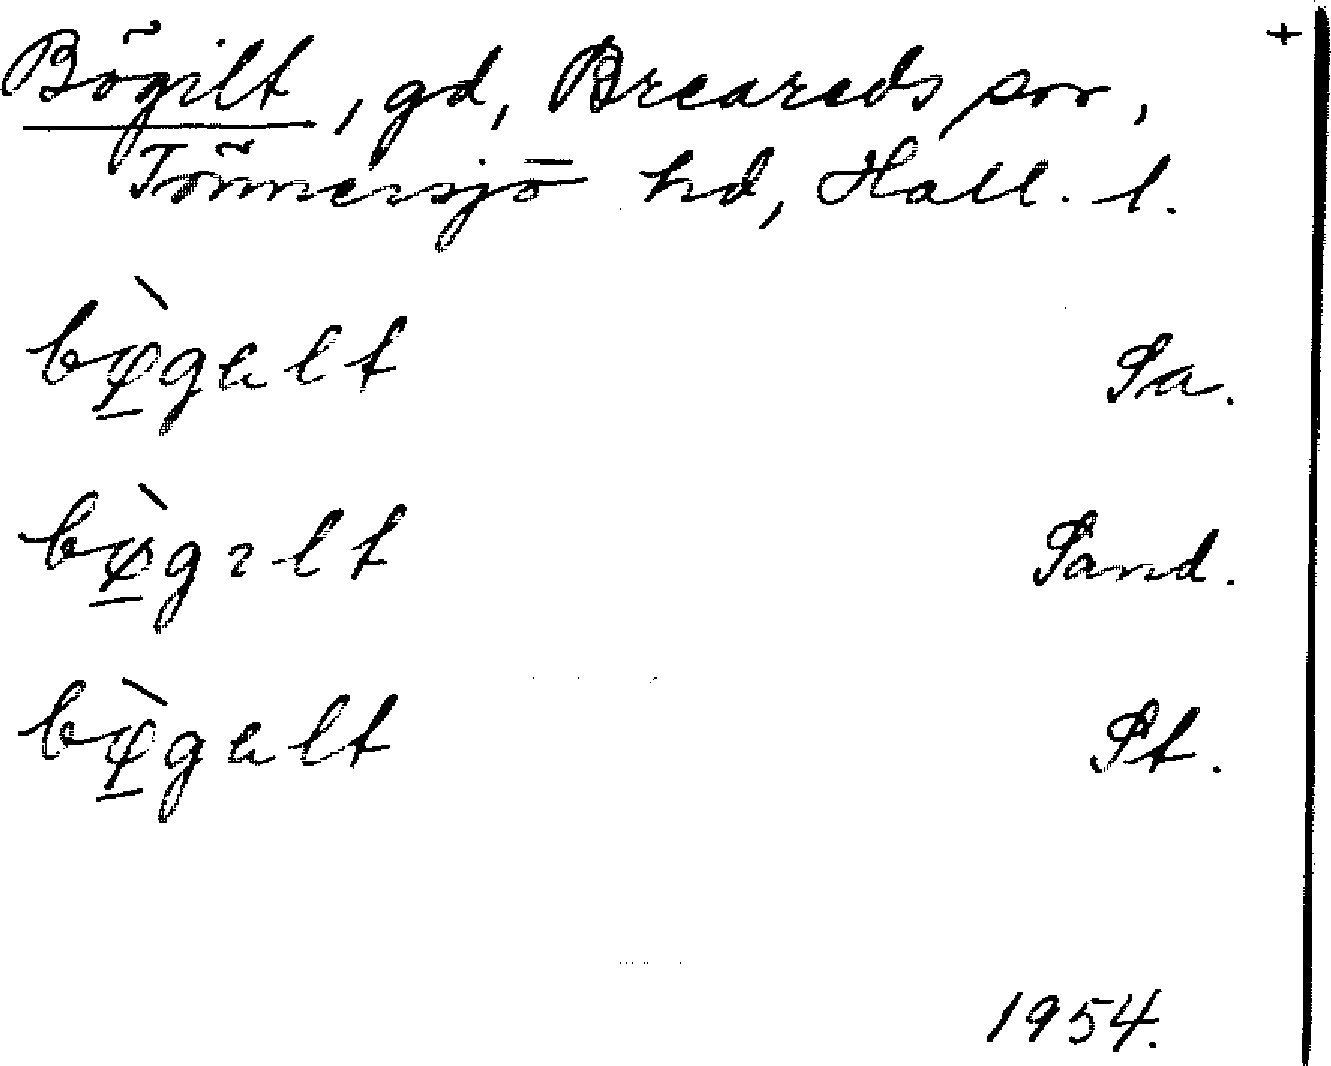 Bögilt, gd, Breareds sn, +
Tönnersjö hd, Hall. l.
bø̱̀galt Sa.
bø̱̀gɿlt Sand.
bø̱̀galt St.
1954.